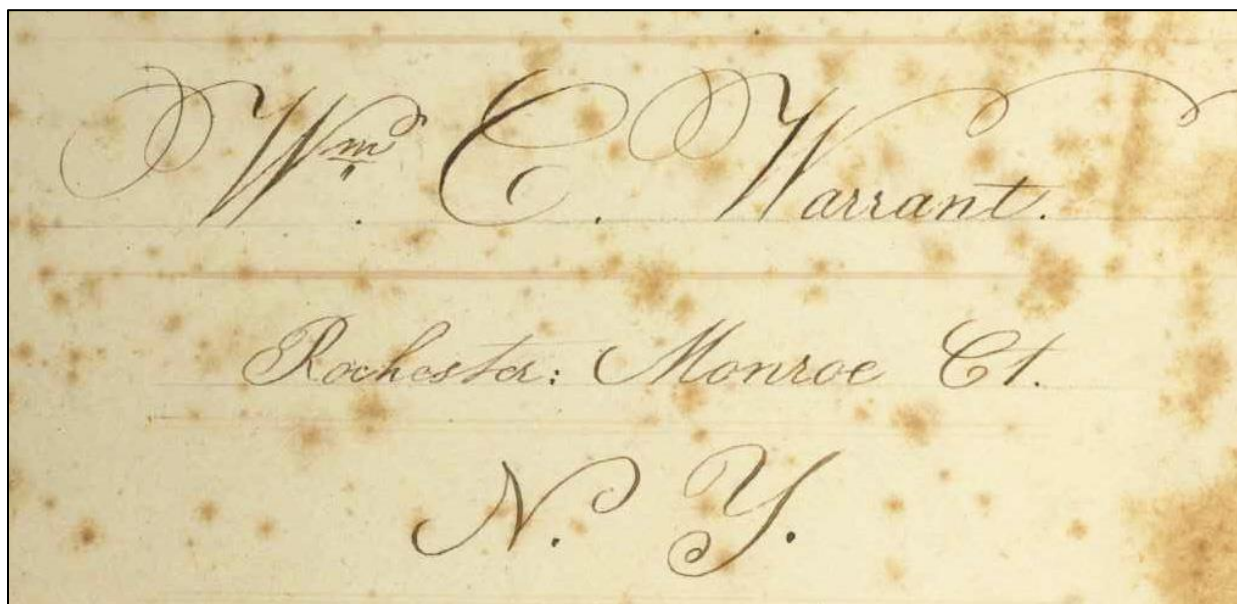 Wm. C. Warrant.
Rochester: Monroe Ct.
N. Y.